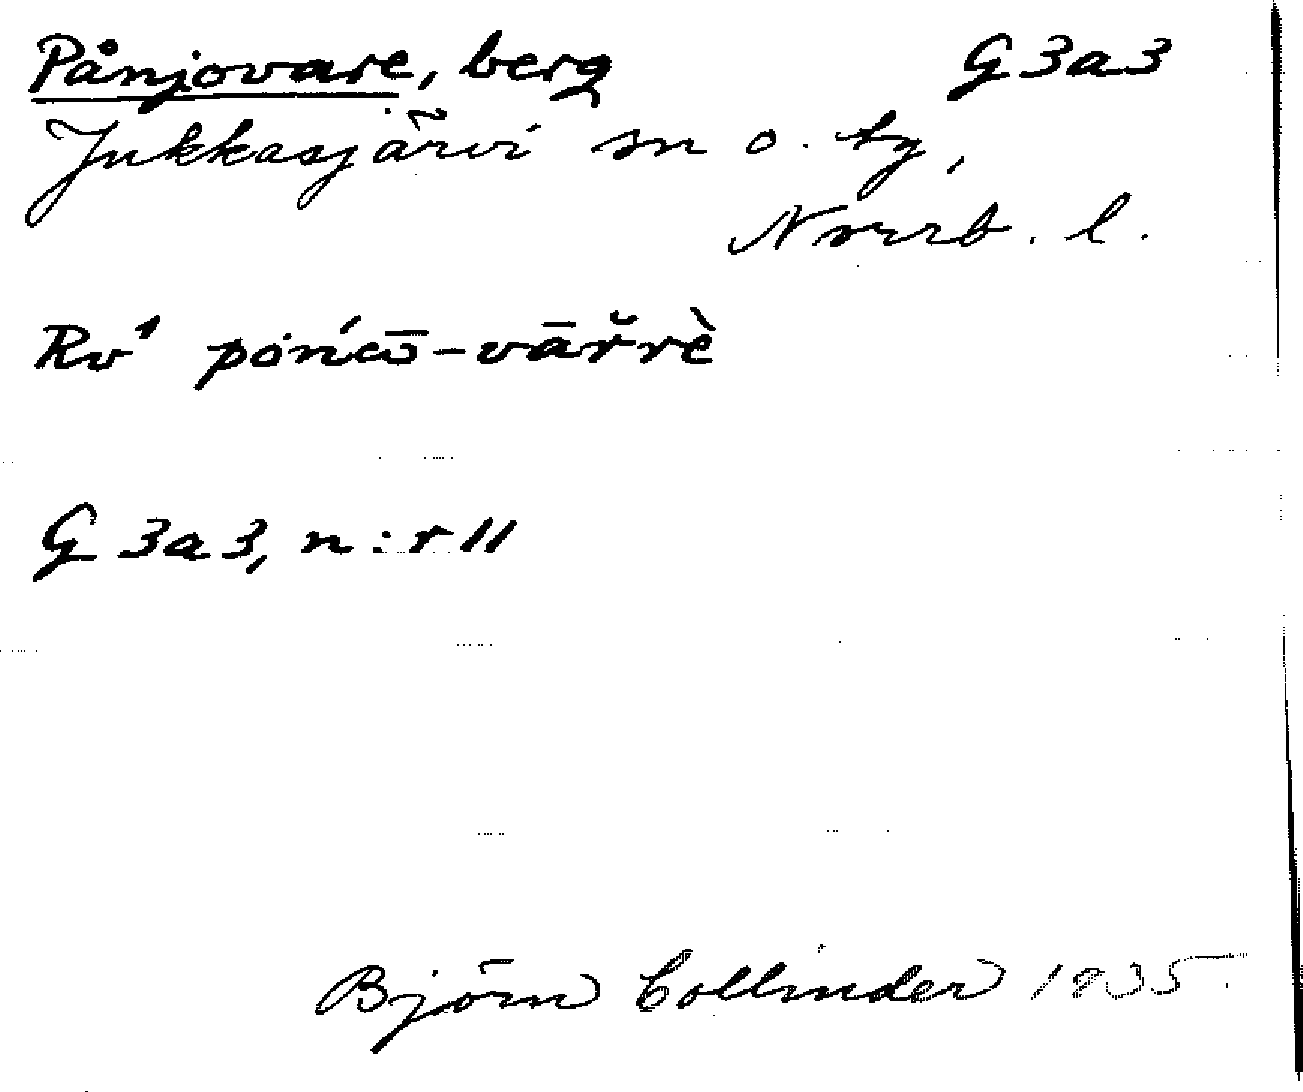 Pånjovare, berg G 3 a 3
Jukkasjärvi sn o. tg,
Norrb. l.
Rv¹ pońićω̄-vāřrè
G 3 a 3, n:r 11
Björn Collinder 1935.